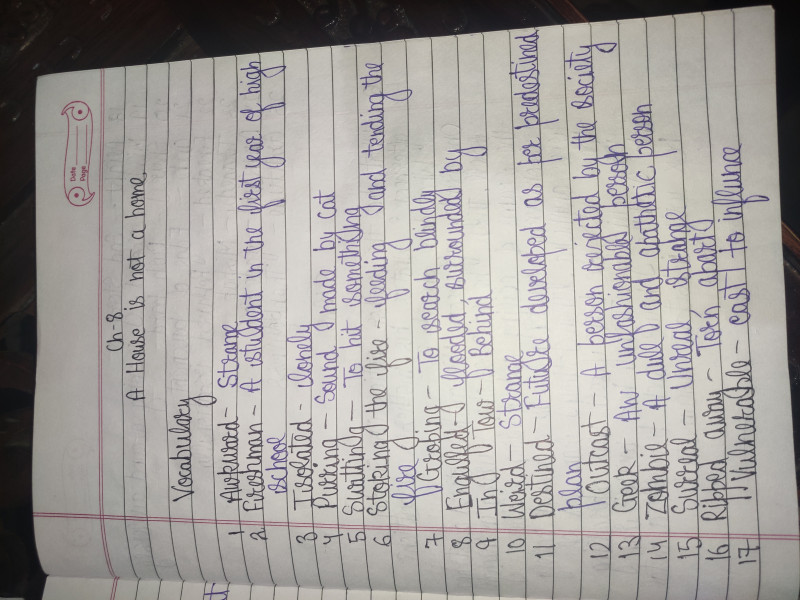 Date
Page
Ch-8
A House is not a home
Vocabulary
1 Awkward- Strange
2 Freshman - A student in the first year of high
school
3 Isolated - lonely
4 Purring - Sound made by cat
5 - To hit something
6 Stoking the fire - feeding and tending the
fire
7 Groping - To search blindly
8 Engulfed - flooded surrounded by
9 In Tow - Behind
10 Weird - Strange
11 Destined - Future developed as for predestined
plan
12 Outcast - A person rejected by the society
13 Geek - An unfashionabled person
14 Zombie - A dull and apathetic person
15 Surreal - Unreal strange
16 Ripped away - Torn apart
17 Vulnerable - east to influnce